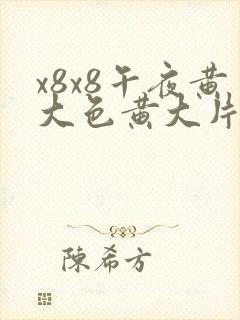 x8x8午夜黄
大色黄大片
陳希方